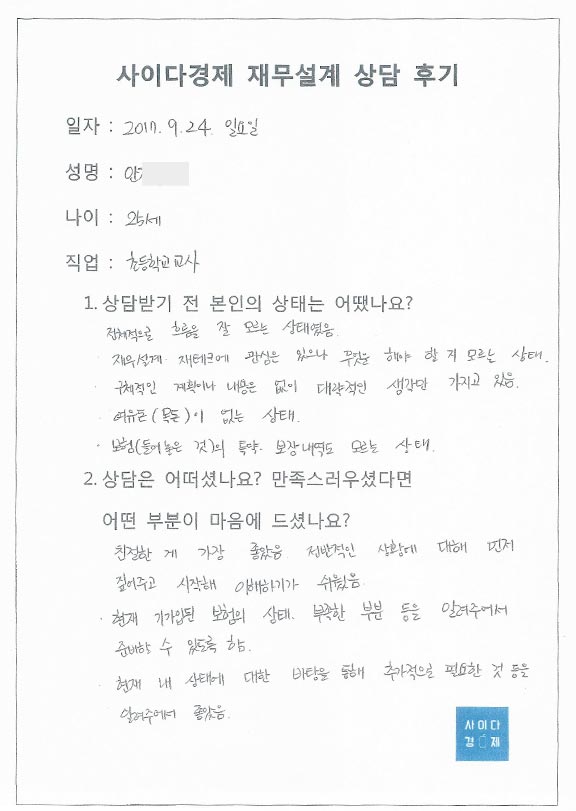 사이다경제 재무설계 상담 후기
일자 : 2017. 9. 24. 일요일
성명 : 안
나이 : 25세
직업 : 초등학교 교사
1. 상담받기 전 본인의 상태는 어땠나요?
전체적으로 흐름을 잘 모르는 상태였음.
· 재무설계·재테크에 관심은 있으나 무엇을 해야 할 지 모르는 상태.
· 구체적인 계획이나 내용은 없이 대략적인 생각만 가지고 있음.
· 여유돈(목돈)이 없는 상태.
· 보험(들어놓은 것)의 특약·보장내역도 모르는 상태.
2. 상담은 어떠셨나요? 만족스러우셨다면
어떤 부분이 마음에 드셨나요?
친절한 게 가장 좋았음 전반적인 상황에 대해 먼저
짚어주고 시작해 이해하기가 쉬웠음.
· 현재 기가입된 보험의 상태. 부족한 부분 등을 알려주어서
준비할 수 있도록 함.
· 현재 내 상태에 대한 바탕을 통해 추가적으로 필요한 것 등을
알려주어서 좋았음.
사이다
경제